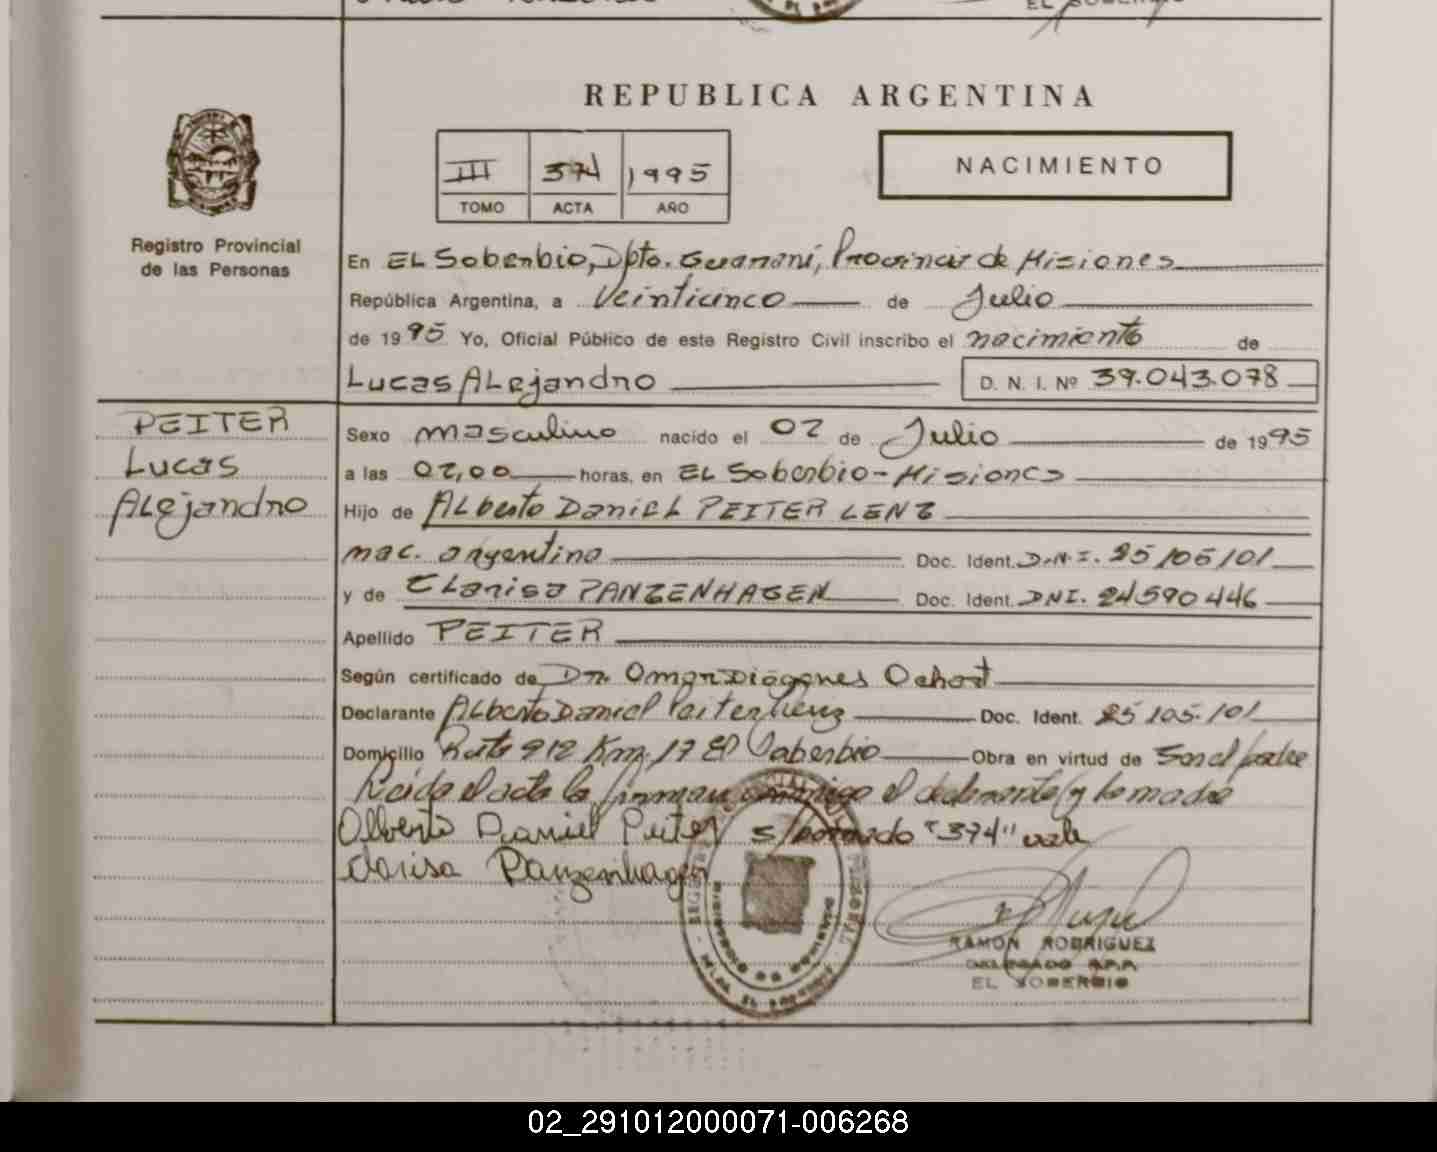 REPUBLICA ARGENTINA
III 374 1995
TOMO ACTA AÑO
NACIMIENTO
Registro Provincial
de las Personas
En EL Soberbio, Dpto. Guaraní, Provincia de Misiones
República Argentina, a Veinticinco de Julio
de 1995 Yo, Oficial Público de este Registro Civil inscribo el nacimiento de
Lucas Alejandro D. N. I. Nº 39.043.078
PEITER
Lucas
Alejandro
Sexo masculino nacido el 02 de Julio de 1995
a las 02,00 horas, en EL Soberbio - Misiones
Hijo de Alberto Daniel PEITER LENZ
nac. argentino Doc. Ident. D.N.I. 25105101
y de Clarisa PANZENHAGEN Doc. Ident. DNI. 24590446
Apellido PEITER
Según certificado de Dr. Omar Diógenes Ochoa
Declarante Alberto Daniel Peiter Lenz Doc. Ident. 25105.101
Domicilio Ruta 212 Km. 17 El Soberbio Obra en virtud de Ser el padre
Leída el acta la firman conmigo el declarante y la madre
Alberto Daniel Peiter s/borrado "374" vale
Clarisa Panzenhagen
RAMON RODRIGUEZ
DELEGADO R.P.P.
EL SOBERBIO
02_291012000071-006268